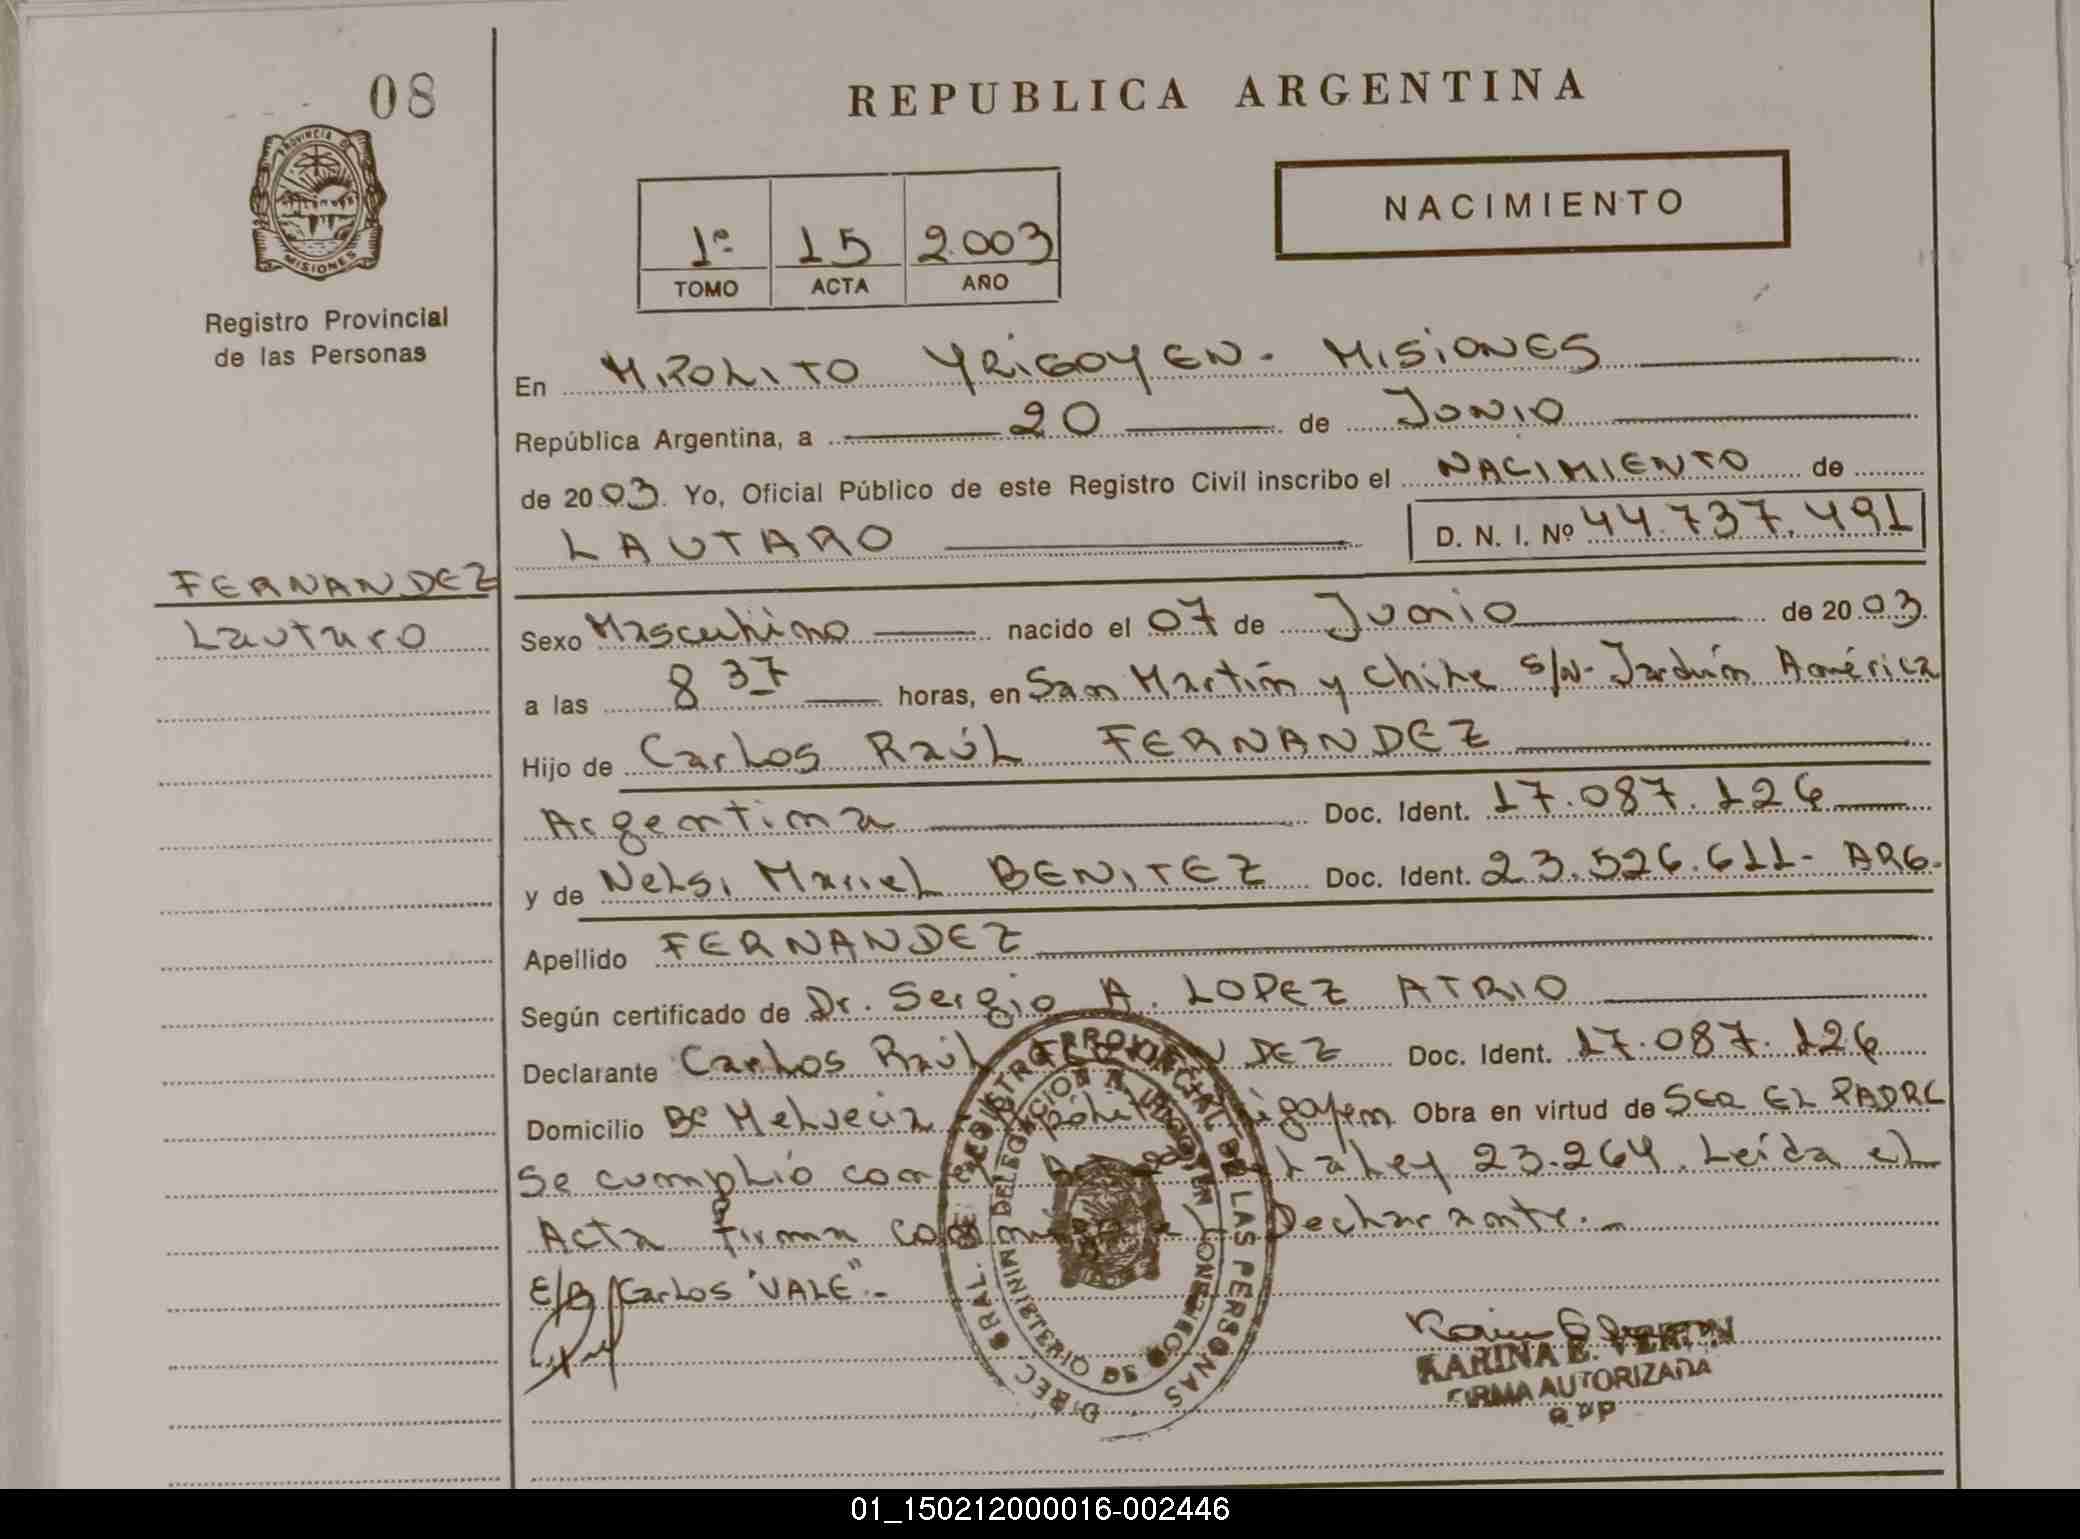 08
REPUBLICA ARGENTINA
PROVINCIA DE
MISIONES
Registro Provincial
de las Personas
1º 15 2.003
TOMO ACTA AÑO
NACIMIENTO
En HIPOLITO YRIGOYEN - MISIONES
República Argentina, a 20 de JUNIO
de 2003. Yo, Oficial Público de este Registro Civil inscribo el NACIMIENTO de
LAUTARO D. N. I. Nº 44.737.491
FERNANDEZ
Lautaro
Sexo Masculino nacido el 07 de Junio de 2003.
a las 8 37 horas, en San Martín y Chile s/N- Jardín América
Hijo de Carlos Raúl FERNANDEZ
Argentina Doc. Ident. 17.087.126
y de Nelsi Mariel BENITEZ Doc. Ident. 23.526.611- ARG.
Apellido FERNANDEZ
Según certificado de Dr. Sergio A. LOPEZ ATRIO
Declarante Carlos Raúl FERNANDEZ Doc. Ident. 17.087.126
Domicilio Bº Helvecia Hipólito Yrigoyen Obra en virtud de SER EL PADRE
Se cumplió con el de la Ley 23.264. Leída el
Acta firma conmigo el Declarante.-
E/ Carlos "VALE".-
DIREC. GRAL. REGISTRO PROVINCIAL DE LAS PERSONAS
DELEGACION H. YRIGOYEN
MINISTERIO DE GOBIERNO
KARINA E.
FIRMA AUTORIZADA
RPP
01_150212000016-002446